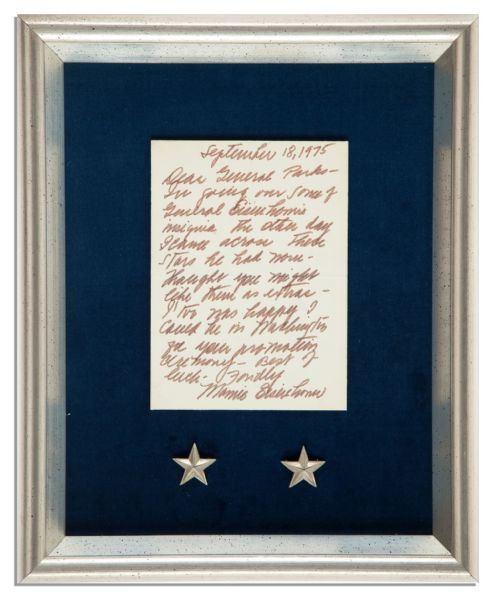 September 18, 1975
Dear General Parks-
In going over some of
General Eisenhowers
insignia the other day
I came across these
stars he had worn-
thought you might
like them as extras-
I too was happy I
could be in Washington
for your promotion
ceremony- Best of
luck- Fondly
Mamie Eisenhower